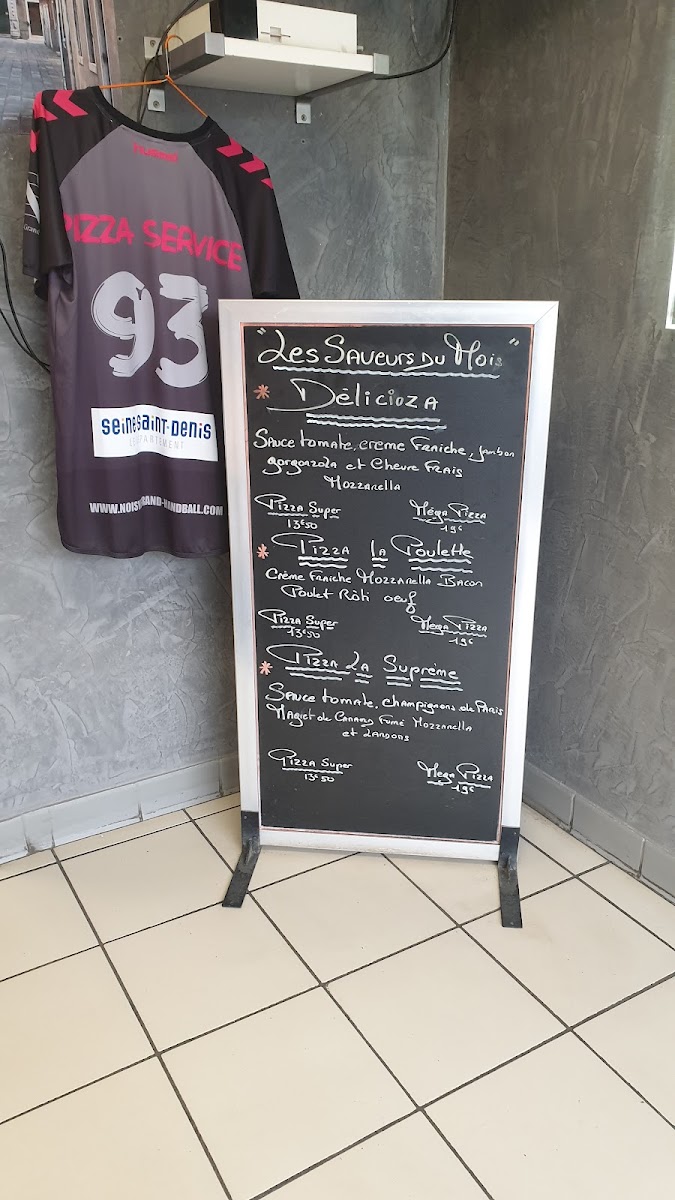 hummel
PIZZA SERVICE
93
seine-saint-denis
LE DÉPARTEMENT
"Les Saveurs du Mois"
* Délicioza
Sauce tomate, crème Fraiche, jambon
gorgonzola et Chevre Frais
Mozzarella
Pizza Super Méga Pizza
13€50 19€
* Pizza la Poulette
Crème Fraiche Mozzarella Bacon
Poulet Rôti oeuf
Pizza Super Mega Pizza
13€50 19€
* Pizza La Suprème
Sauce tomate, champignons de Paris
Magret de Canard Fumé Mozzarella
et Lardons
Pizza Super Mega Pizza
13€50 19€